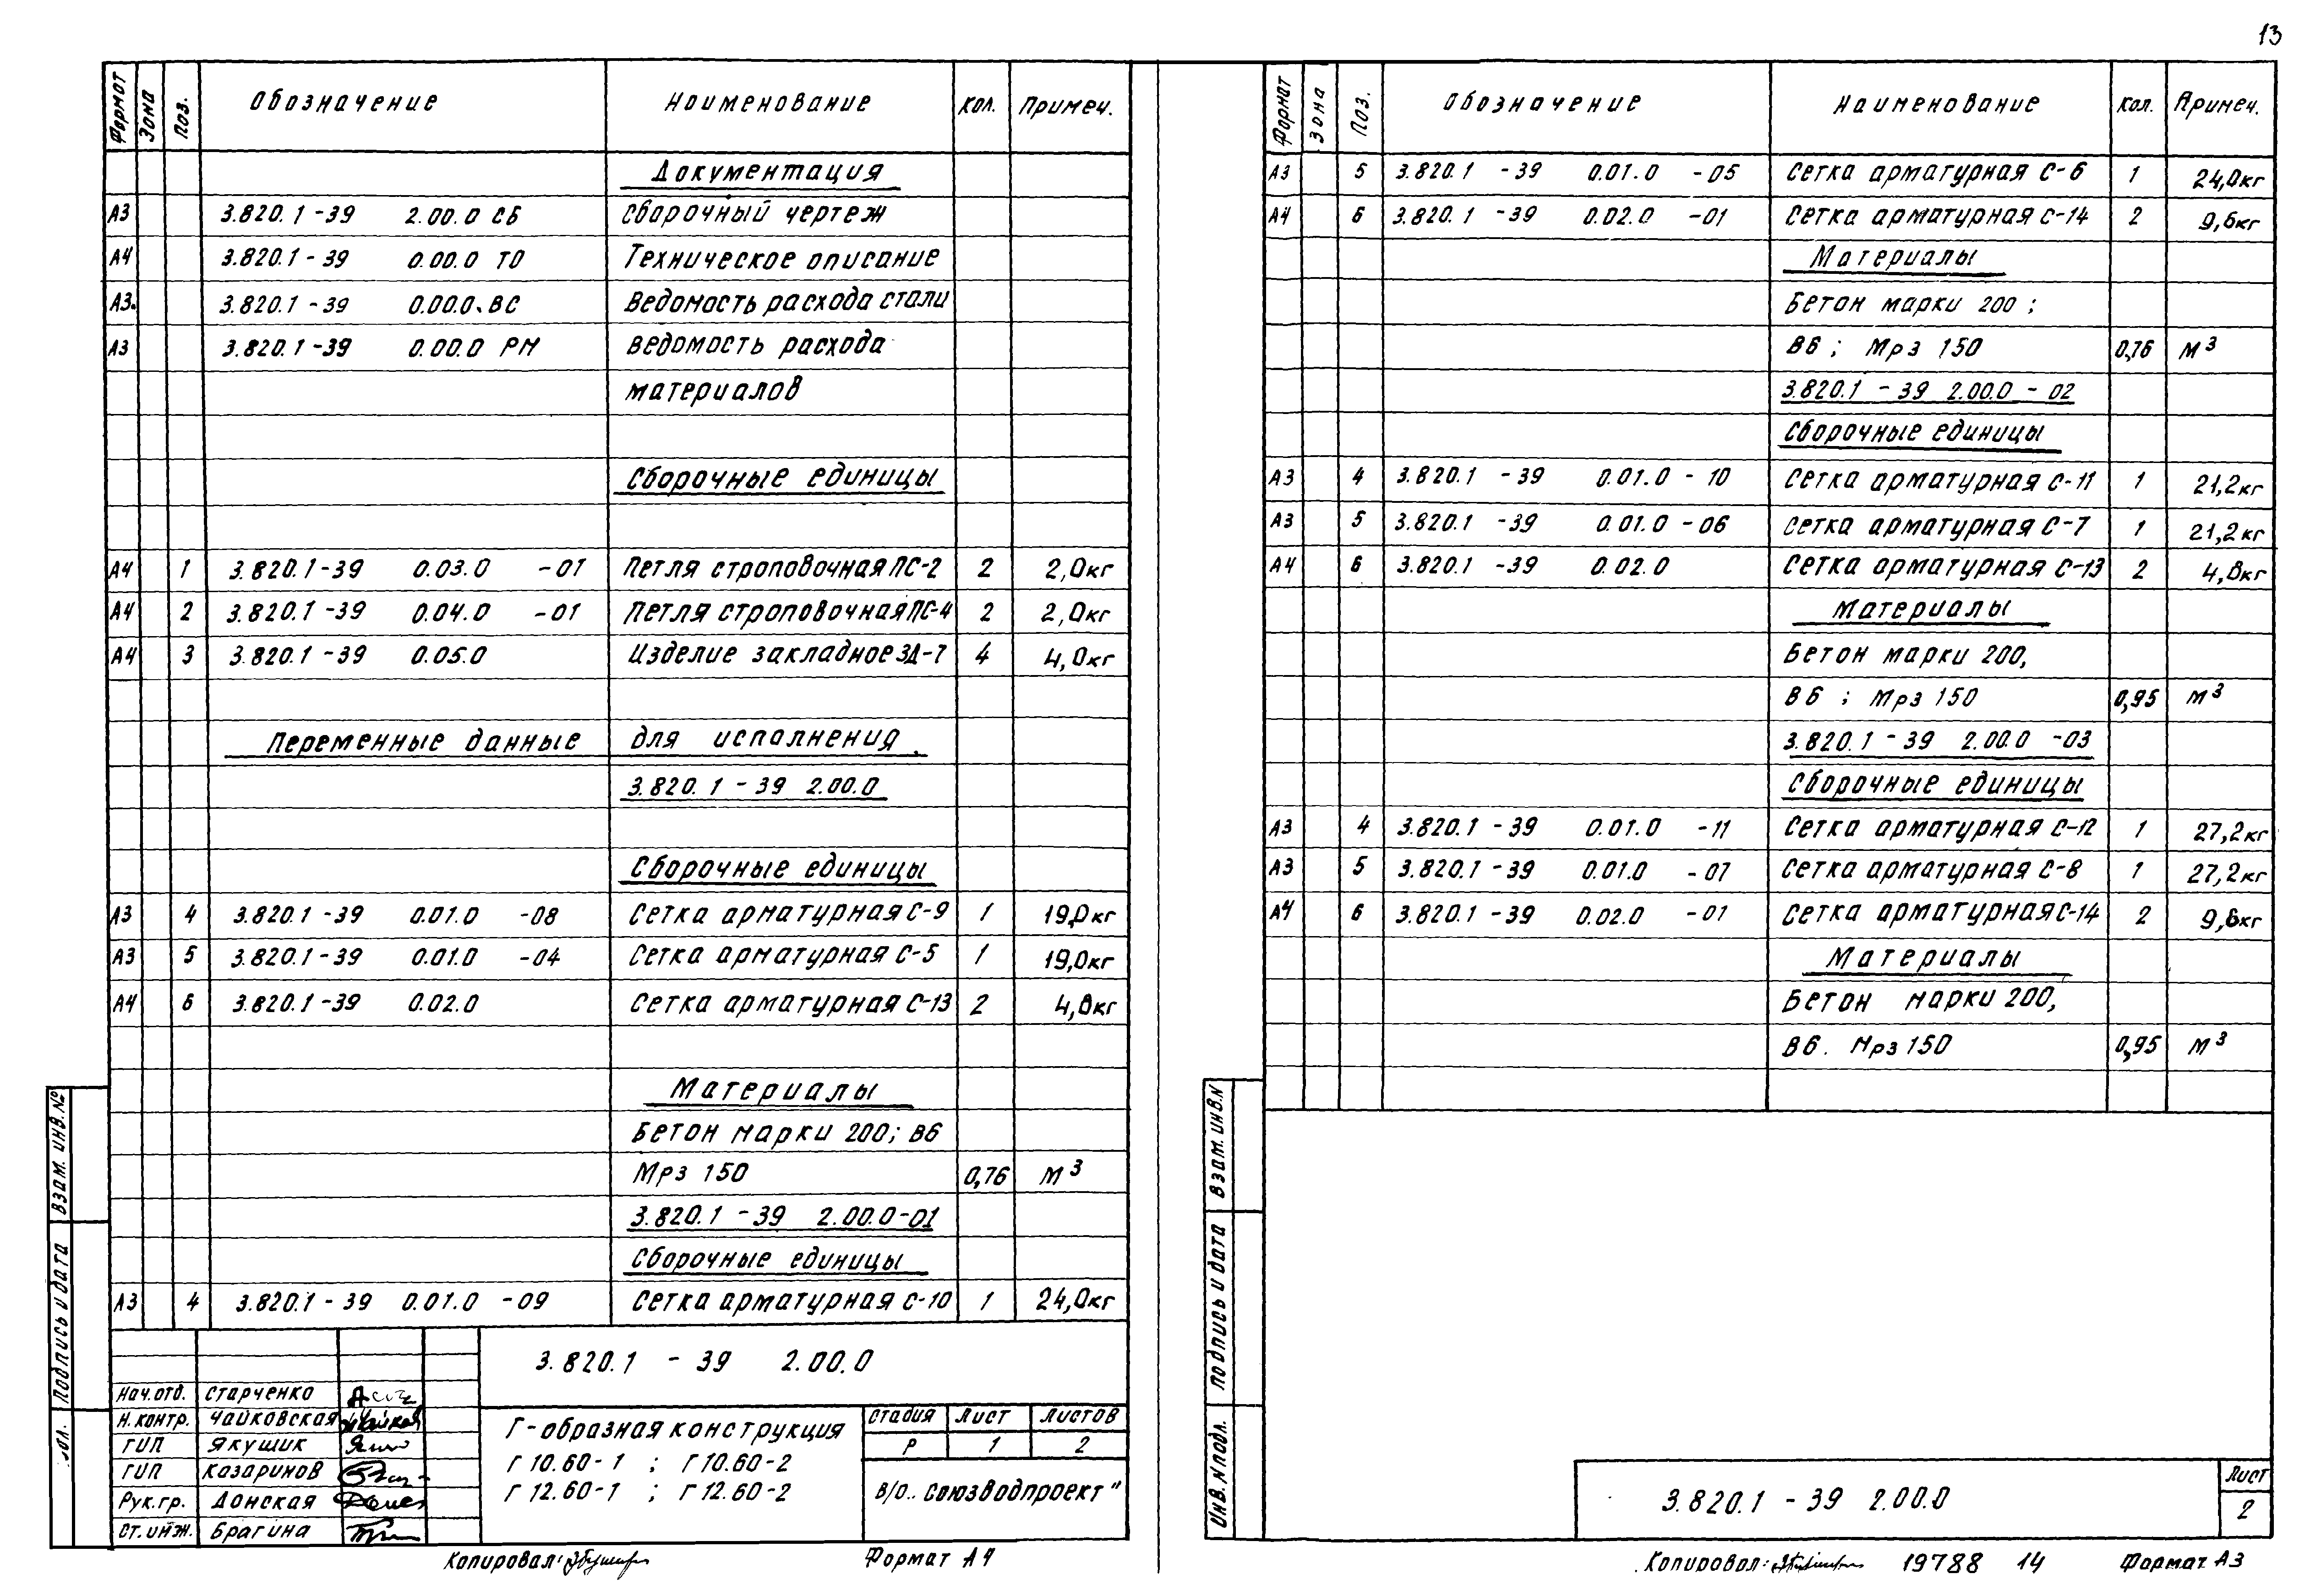 13
Формат Зона Поз. Обозначение Наименование Кол. Примеч.
Документация
А3 3.820.1-39 2.00.0 СБ Сборочный чертеж
А4 3.820.1-39 0.00.0 ТО Техническое описание
А3. 3.820.1-39 0.00.0. ВС Ведомость расхода стали
А3 3.820.1-39 0.00.0 РМ Ведомость расхода
материалов
Сборочные единицы
А4 1 3.820.1-39 0.03.0 -01 Петля строповочная ПС-2 2 2,0кг
А4 2 3.820.1-39 0.04.0 -01 Петля строповочная ПС-4 2 2,0кг
А4 3 3.820.1-39 0.05.0 Изделие закладное ЗД-7 4 4,0кг
Переменные данные для исполнения
3.820.1-39 2.00.0
Сборочные единицы
А3 4 3.820.1-39 0.01.0 -08 Сетка арматурная С-9 1 19,0кг
А3 5 3.820.1-39 0.01.0 -04 Сетка арматурная С-5 1 19,0кг
А4 6 3.820.1-39 0.02.0 Сетка арматурная С-13 2 4,8кг
Материалы
Бетон марки 200; В6
Мрз 150 0,76 м³
3.820.1-39 2.00.0-01
Сборочные единицы
А3 4 3.820.1-39 0.01.0 -09 Сетка арматурная С-10 1 24,0кг
3.820.1 - 39 2.00.0
Нач.отд. Старченко
Н.контр. Чайковская
ГИП Якушик
ГИП Казаринов
Рук.гр. Донская
Ст.инж. Брагина
Г-образная конструкция
Г 10.60-1 ; Г 10.60-2
Г 12.60-1 ; Г 12.60-2
Стадия Лист Листов
Р 1 2
В/О.. Союзводпроект"
Взам. инв.№
Подпись и дата
Копировал: Формат А4
Формат Зона Поз. Обозначение Наименование Кол. Примеч.
А3 5 3.820.1 -39 0.01.0 -05 Сетка арматурная С-6 1 24,0кг
А4 6 3.820.1 -39 0.02.0 -01 Сетка арматурная С-14 2 9,6кг
Материалы
Бетон марки 200 ;
В6 ; Мрз 150 0,76 м³
3.820.1 - 39 2.00.0 - 02
Сборочные единицы
А3 4 3.820.1 -39 0.01.0 - 10 Сетка арматурная С-11 1 21,2кг
А3 5 3.820.1 -39 0.01.0 -06 Сетка арматурная С-7 1 21,2кг
А4 6 3.820.1 -39 0.02.0 Сетка арматурная С-13 2 4,8кг
Материалы
Бетон марки 200,
В6 ; Мрз 150 0,95 м³
3.820.1 - 39 2.00.0 -03
Сборочные единицы
А3 4 3.820.1 - 39 0.01.0 -11 Сетка арматурная С-12 1 27,2кг
А3 5 3.820.1 - 39 0.01.0 -07 Сетка арматурная С-8 1 27,2кг
А4 6 3.820.1 - 39 0.02.0 -01 Сетка арматурная С-14 2 9,6кг
Материалы
Бетон марки 200,
В6. Мрз 150 0,95 м³
Взам. инв.N
Подпись и дата
Инв.Nподл.
3.820.1 - 39 2.00.0
Лист
2
Копировал: 19788 14 Формат А3